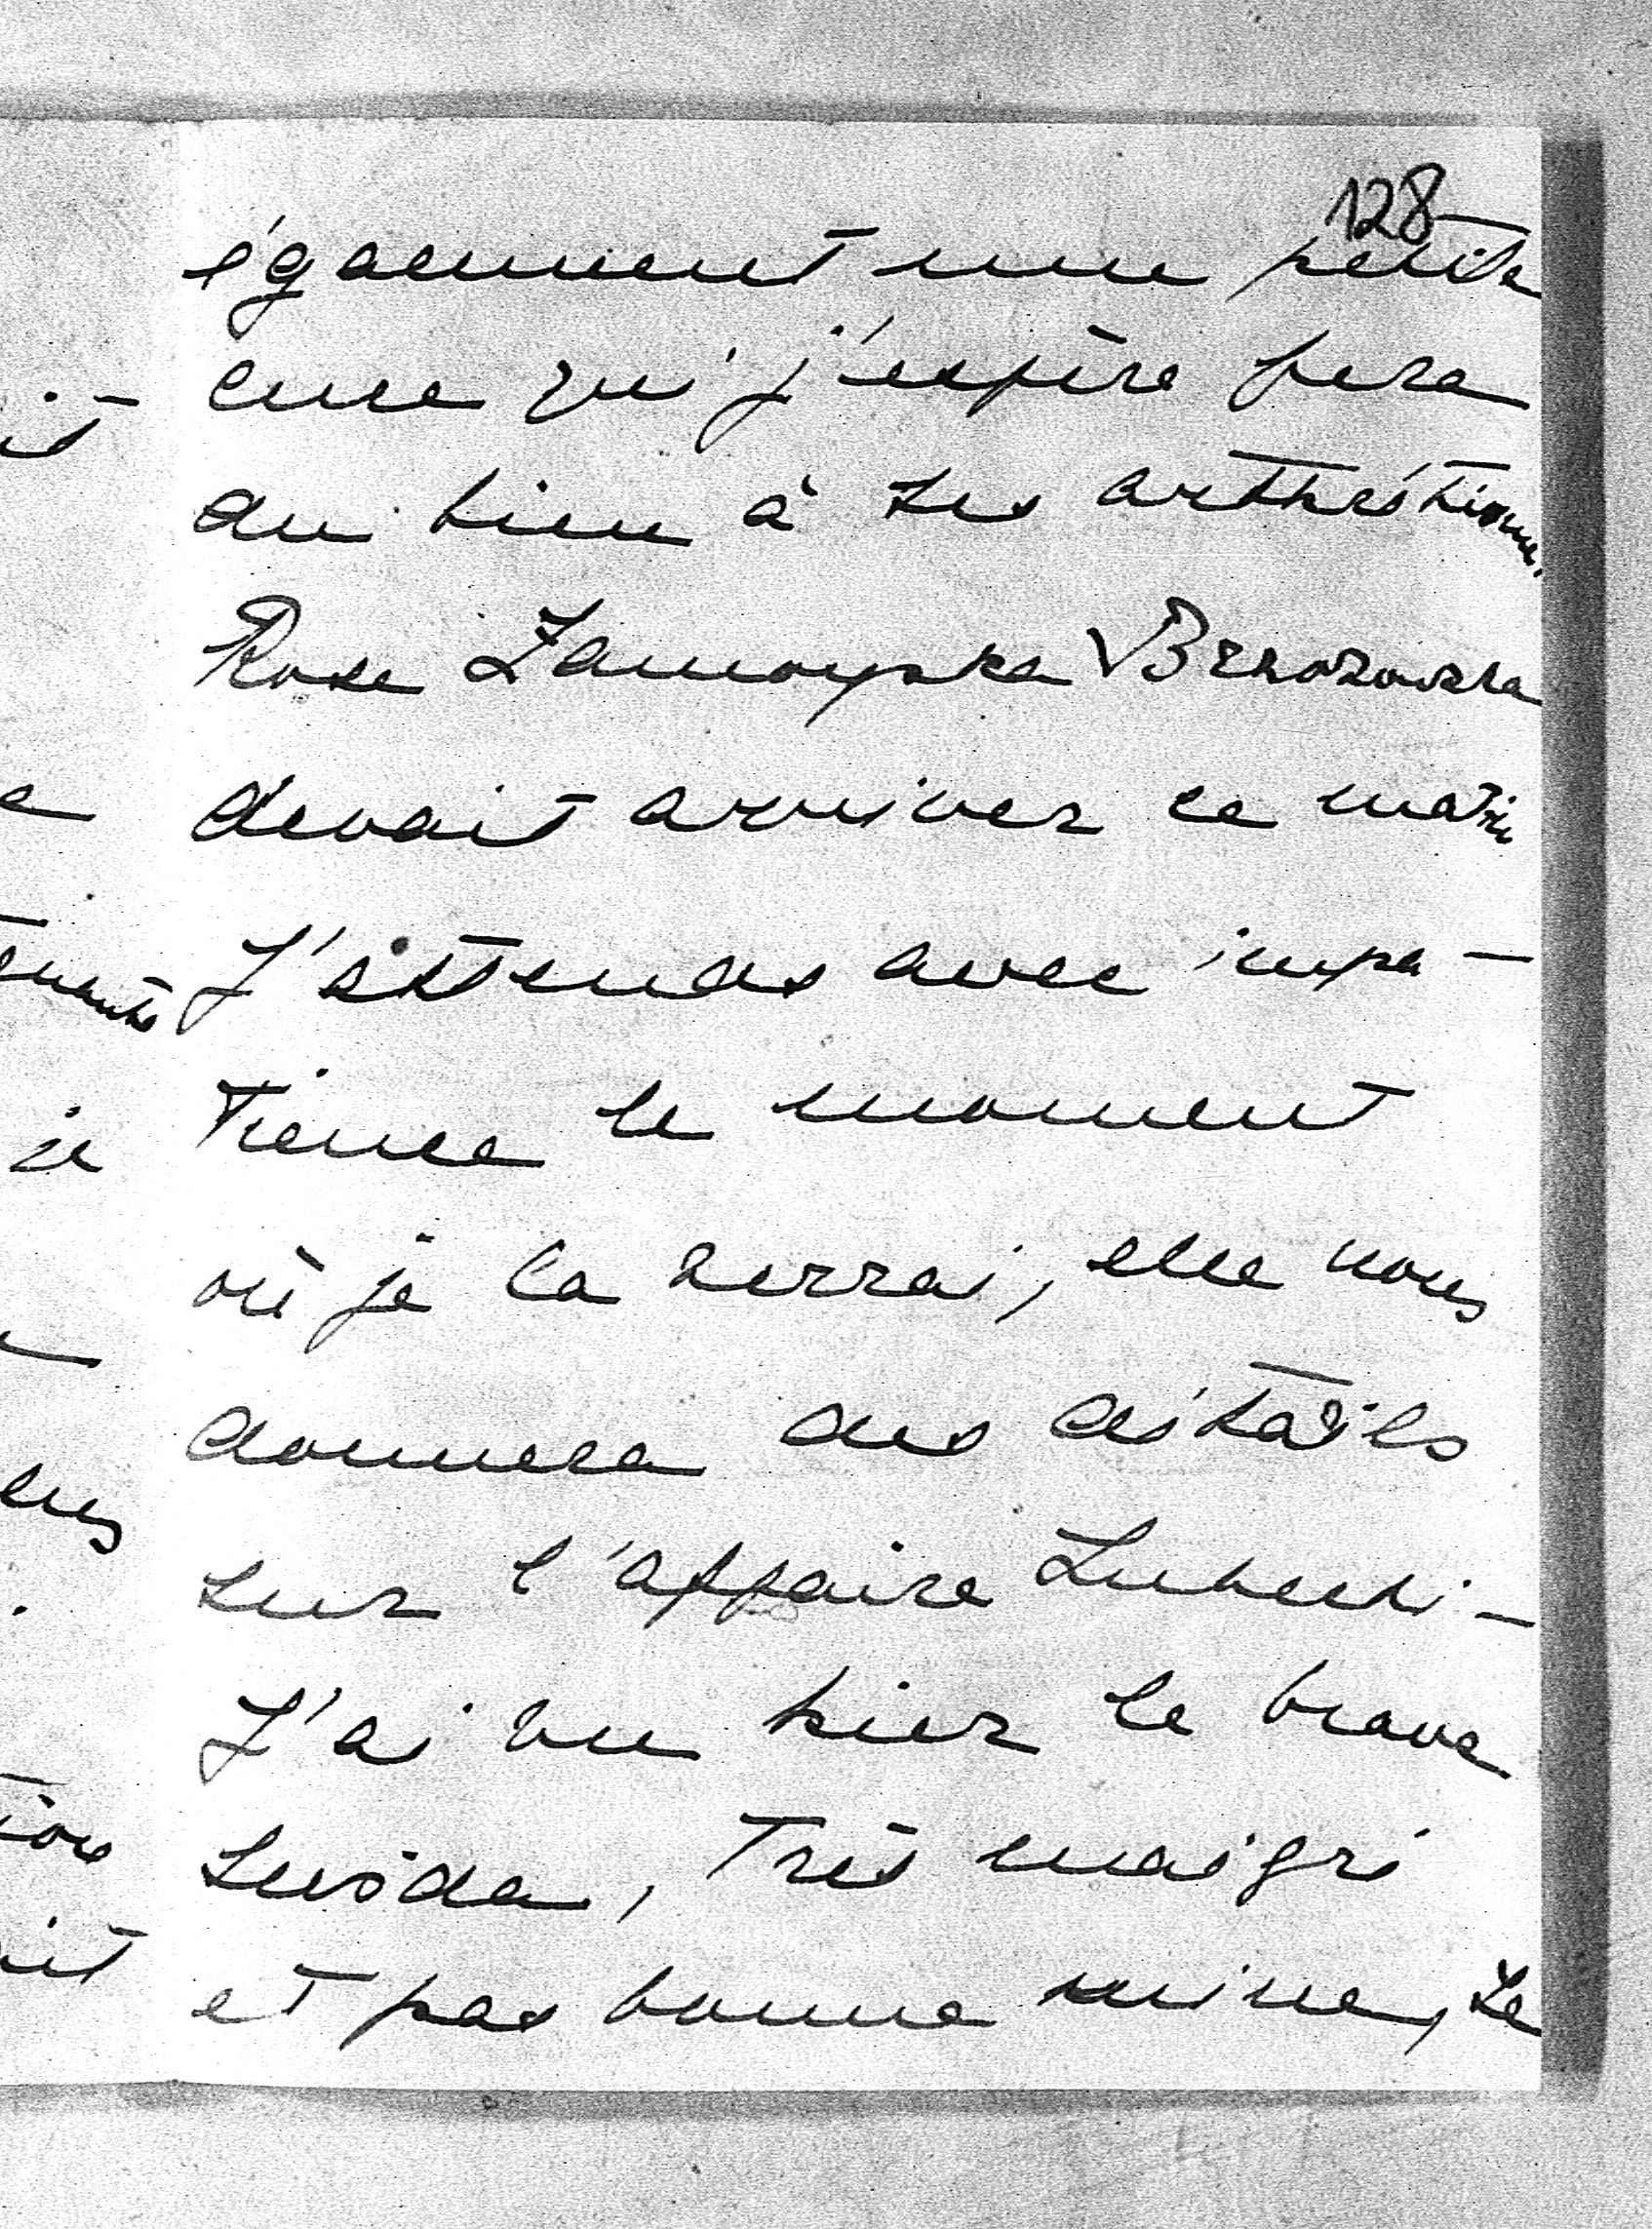 128
également une petite
cure qui j'espère fera
du bien à ses arthritisme.
Rose Zamoyska Brzozowska
devait arriver ce matin
J'attends avec impa-
tience le moment
où je la verrai, elle nous
donnera des détails
sur l'affaire Lubecki-
J'ai vu hier le brave
très maigri
et pas bonne mine, se